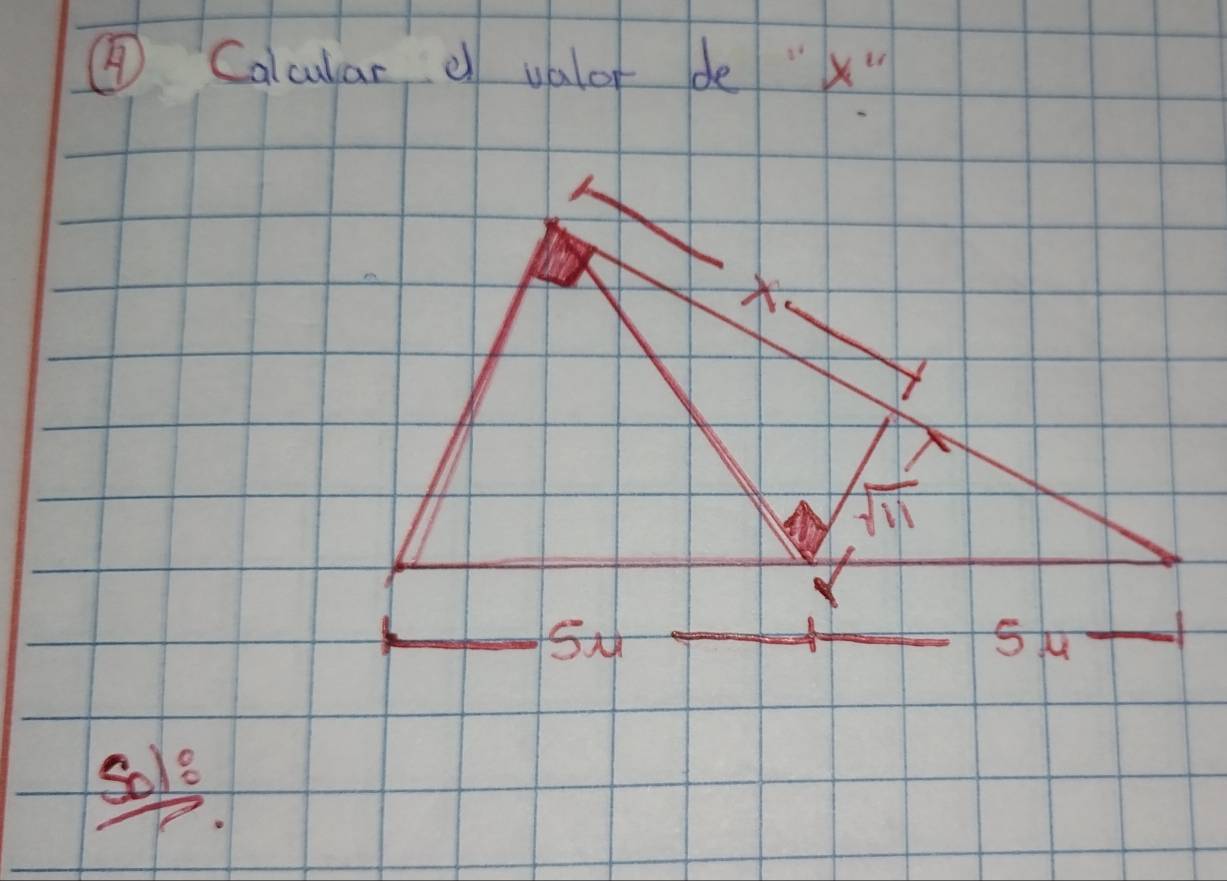 ④ Calcular el valor de "x"
x
√11
5u 5u
Sol: